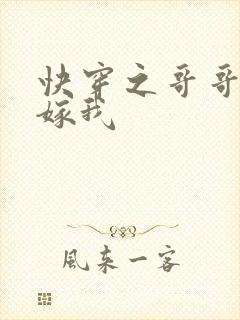 快穿之哥哥
嫁我
風来一客